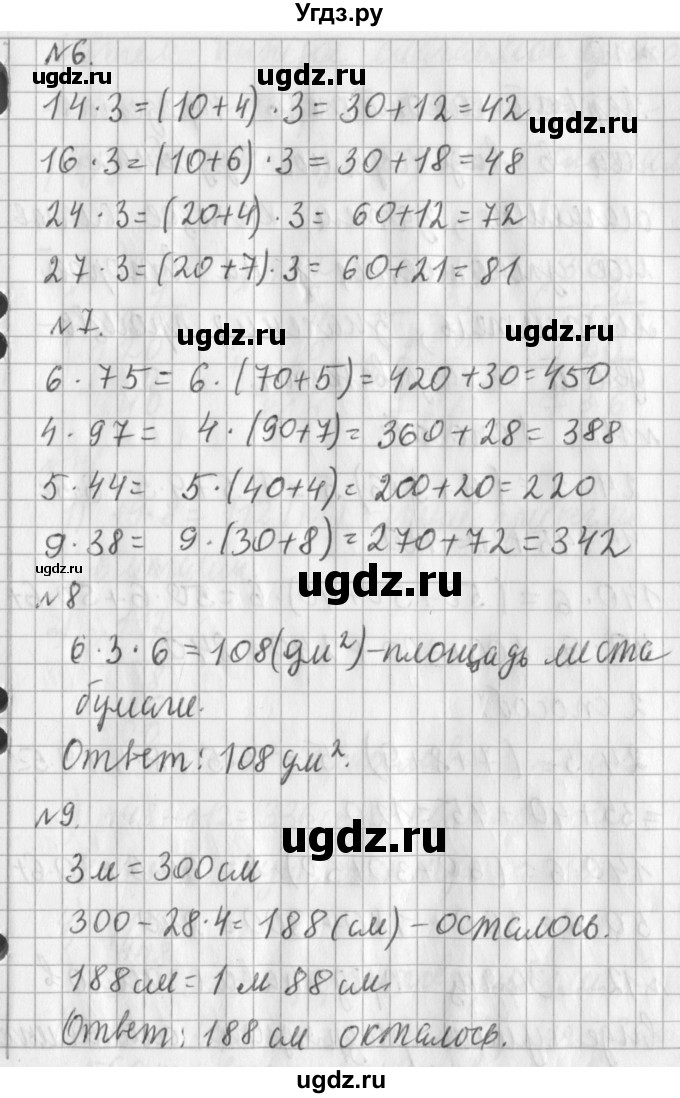 Угдз.ру
№6.
ugdz.ru
14·3=(10+4)·3=30+12=42
ugdz.ru
16·3=(10+6)·3=30+18=48
24·3=(20+4)·3= 60+12=72
27·3=(20+7)·3= 60+21=81
№7.
ugdz.ru
ugdz.ru
6·75= 6·(70+5)=420+30=450
4·97= 4·(90+7)=360+28=388
5·44= 5·(40+4)=200+20=220
9·38= 9·(30+8)=270+72=342
ugdz.ru
ugdz.ru
№8
6·3·6=108(дм²)-площадь листа
бумаги.
Ответ: 108 дм².
№9.
ugdz.ru
3м=300см
300-28·4=188(см)-осталось.
188см=1м 88см.
Ответ: 188см осталось.
ugdz.ru